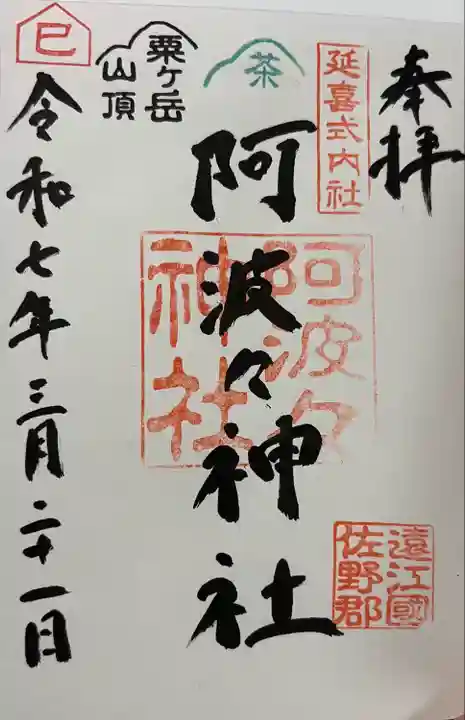 奉拝
延喜式内社
茶
阿波々神社
阿波々
神社
遠江國
佐野郡
粟ヶ岳
山頂
巳
令和七年三月二十一日